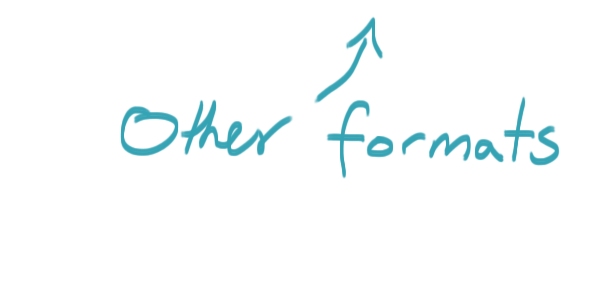 Other formats